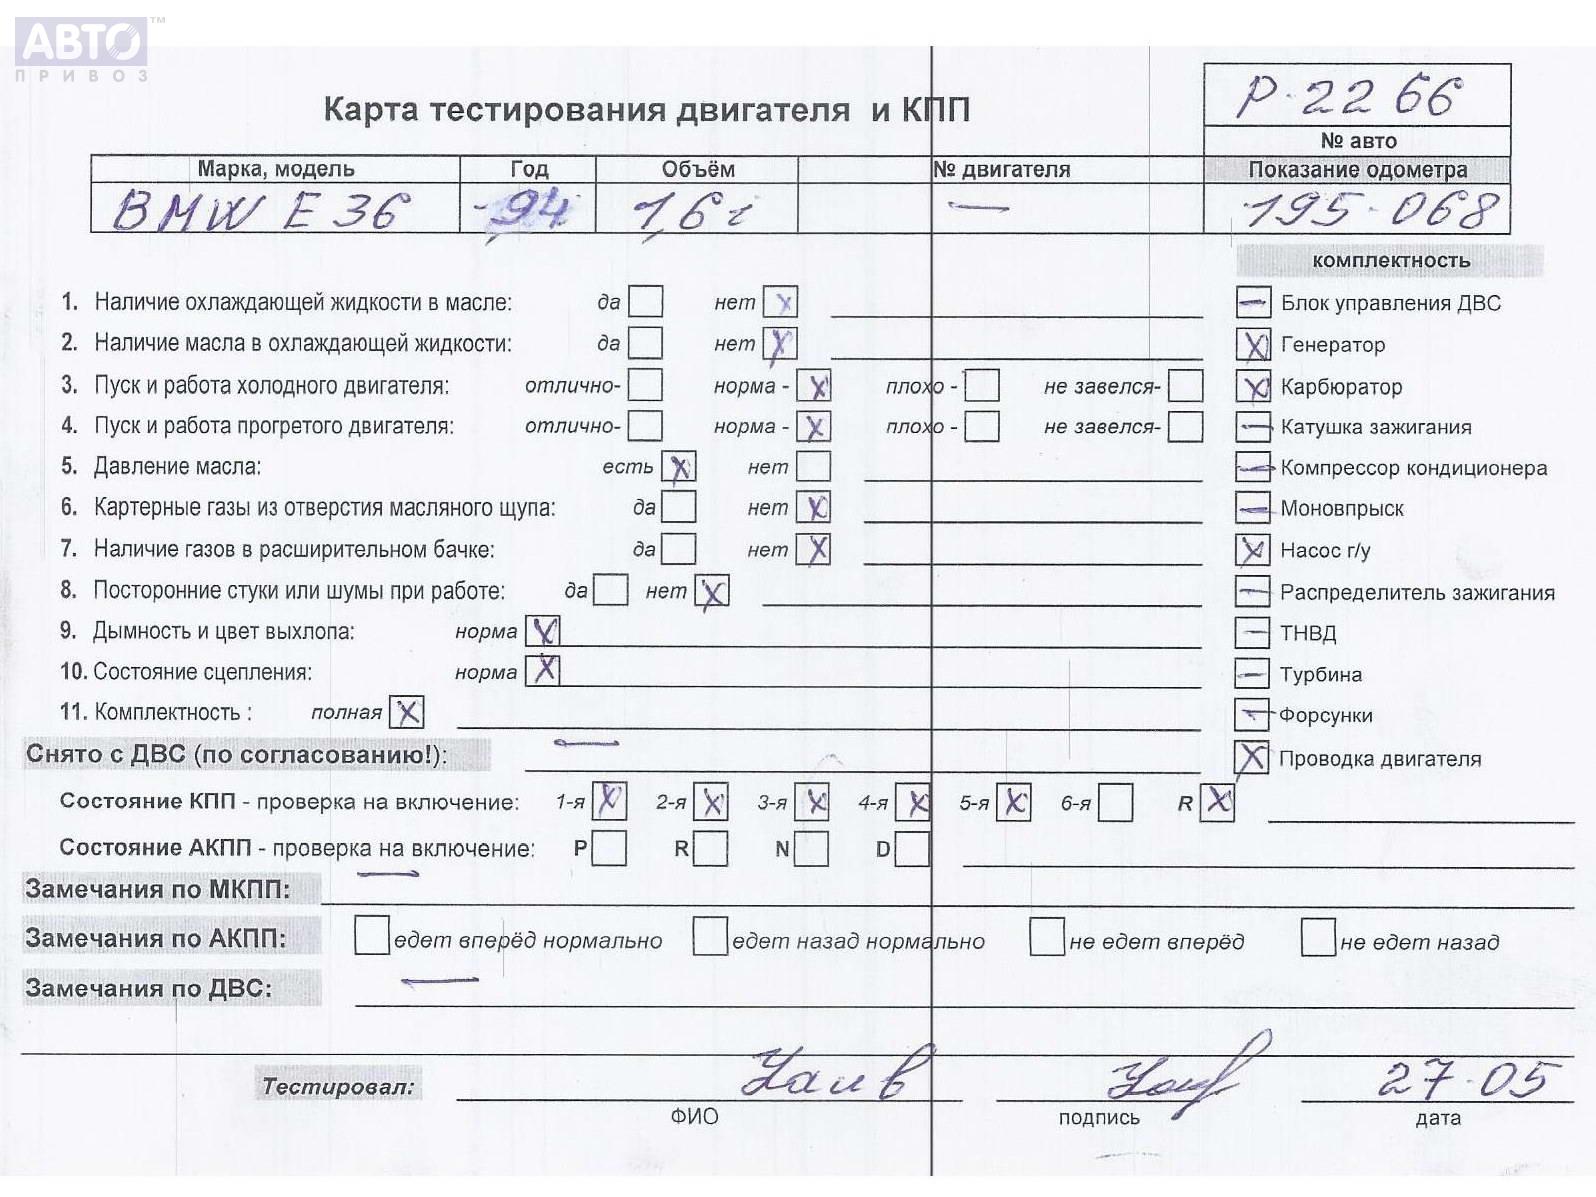 АВТО™
ПРИВОЗ
Р-2266
Карта тестирования двигателя и КПП
№ авто
Марка, модель Год Объём № двигателя Показание одометра
BMW E 36 -94 1,6 i — 195-068
комплектность
1. Наличие охлаждающей жидкости в масле: да нет x
— Блок управления ДВС
2. Наличие масла в охлаждающей жидкости: да нет x
x Генератор
3. Пуск и работа холодного двигателя: отлично- норма - x плохо - не завелся-
x Карбюратор
4. Пуск и работа прогретого двигателя: отлично- норма - x плохо - не завелся-
— Катушка зажигания
5. Давление масла: есть x нет
— Компрессор кондиционера
6. Картерные газы из отверстия масляного щупа: да нет x
— Моновпрыск
7. Наличие газов в расширительном бачке: да нет x
x Насос г/у
8. Посторонние стуки или шумы при работе: да нет x
— Распределитель зажигания
9. Дымность и цвет выхлопа: норма x
— ТНВД
10. Состояние сцепления: норма x
— Турбина
11. Комплектность : полная x
— Форсунки
Снято с ДВС (по согласованию!): —
x Проводка двигателя
Состояние КПП - проверка на включение: 1-я x 2-я x 3-я x 4-я x 5-я x 6-я R x
Состояние АКПП - проверка на включение: P R N D
Замечания по МКПП: —
Замечания по АКПП: едет вперёд нормально едет назад нормально не едет вперёд не едет назад
Замечания по ДВС: —
Тестировал: 27-05
ФИО подпись дата